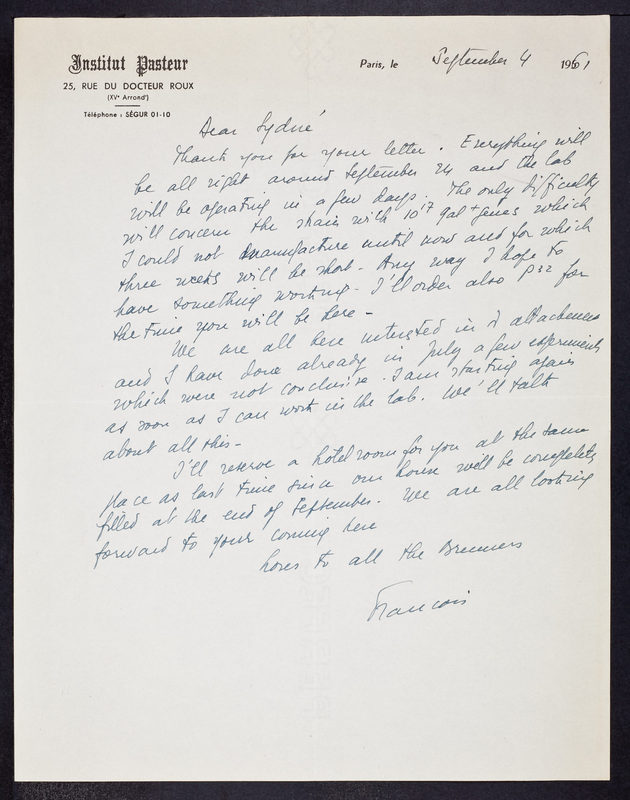 Institut Pasteur
25, RUE DU DOCTEUR ROUX
(XVe Arrondt)
Téléphone : SÉGUR 01-10
Paris, le September 4 1961
Dear Sydné
Thank you for your letter. Everything will
be all right around September 24 and the lab
will be operating in a few days. The only difficulty
will concern the strain with 10 17 gal + genes which
I could not manufacture until now and for which
three weeks will be short. Any way I hope to
have something working. I'll order also P32 for
the time you will be here -
We are all here interested in attachement
and I have done already in July a few experiments
which were not conclusive. I am starting again
as soon as I can work in the lab. We'll talk
about all this -
I'll reserve a hotel room for you at the same
place as last time since our house will be completely
filled at the end of September. We are all looking
forward to your coming here
Loves to all the Brenners
Francois